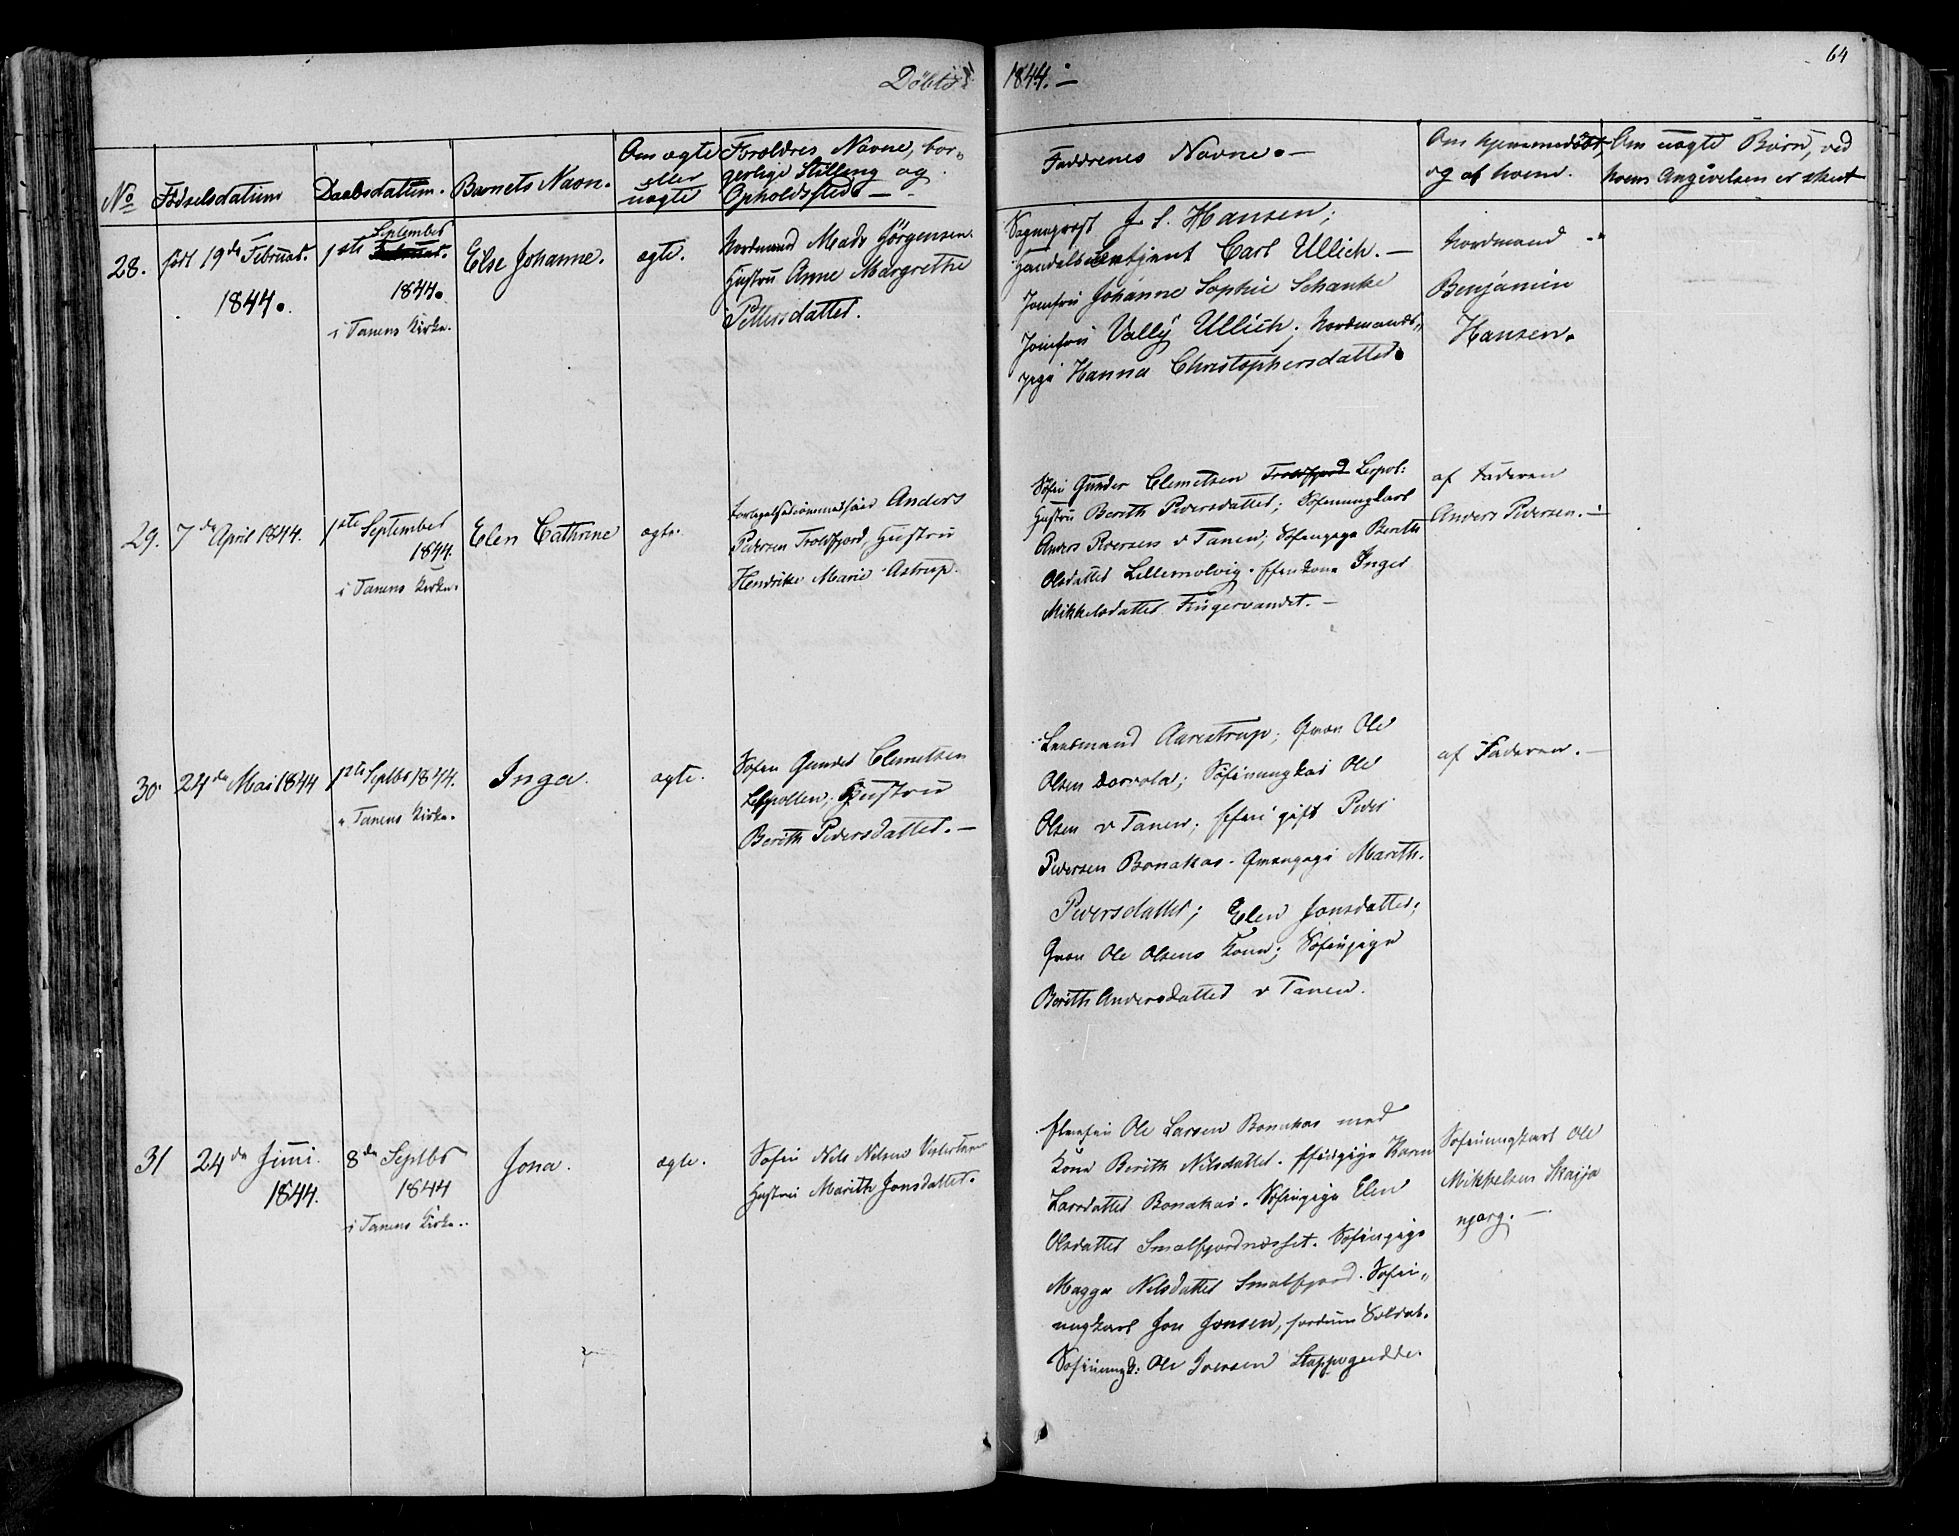 64
Døbte 1844. —
No
Fødselsdatum
Daabsdatum.
Barnets Navn.
Om ægte
eller
uægte
Forældres Navne, bor-
gerlige Stilling og
Opholdssted —
Faddrenes Navne. —
Om hjemmedøbt,
og af hvem.
Om uægte Børn, ved
hvem Angivelsen er skeet
28.
født 19de Februar.
1844.
1ste September
1844.
i Tanens Kirke.
Else Johanne.
ægte.
Nordmand Mads Jørgensen
Hustru Anne Margrethe
Pettersdatter.
Sognepræst J. S. Hansen;
Carl Ullich. —
Jomfru Johanne Sophie Schanke
Jomfru Vally Ullich; Nordmands-
pige Hanna Christophersdatter.
Nordmand
Benjamin
Hansen.
29.
7de April 1844.
1ste September
1844.
i Tanens Kirke.
Elen Cathrine
ægte.
Anders
Pedersen Troldfjord, Hustru
Hendrikke Marie Astrup.
Søfin Gunder Clemetsen Troldfjord Leirpol:
Hustru Berith Pedersdatter; Søfinungkarl
Anders Pedersen v Tanen; Søfinpige Berith
Olsdatter Lillemolvig. Inger
Mikkelsdatter Fingervandet. —
af Faderen
Anders Pedersen. —
30.
24de Mai 1844
1ste Septbr 1844.
i Tanens Kirke.
Inga.
ægte.
Søfin Gunder Clemetsen
Leirpollen; Hustru
Berith Pedersdatter. —
Lensmand Aarestrup; Qvæn Ole
Olsen; Søfinungkarl Ole
Olsen v Tanen; gift Peder
Pedersen Bonakas. Qvænpige Marith
Pedersdatter; Elen Jonsdatter,
Qvæn Ole Olsens Kone; Søfinpige
Berith Andersdatter v Tanen.
af Faderen. —
31
24de Juni.
1844.
8de Septbr
1844
i Tanens Kirke.
Jona.
ægte.
Søfin Nils Nilsen Vestertan
Hustru Marith Jonsdatter.
Ole Larsen Bonakas med
Kone Berith Nilsdatter. Karen
Larsdatter Bonakas. Søfinpige Elen
Olsdatter Smalfjordnæsset. Søfinpige
Magga Nilsdatter Smalfjord. Søfin-
ungkarl Jon Jonsen, fordum Soldat.
Søfinungk: Ole Iversen Stappogiedde.
Søfinungkarl Ole
Mikkelsen Skaija
njarg. —